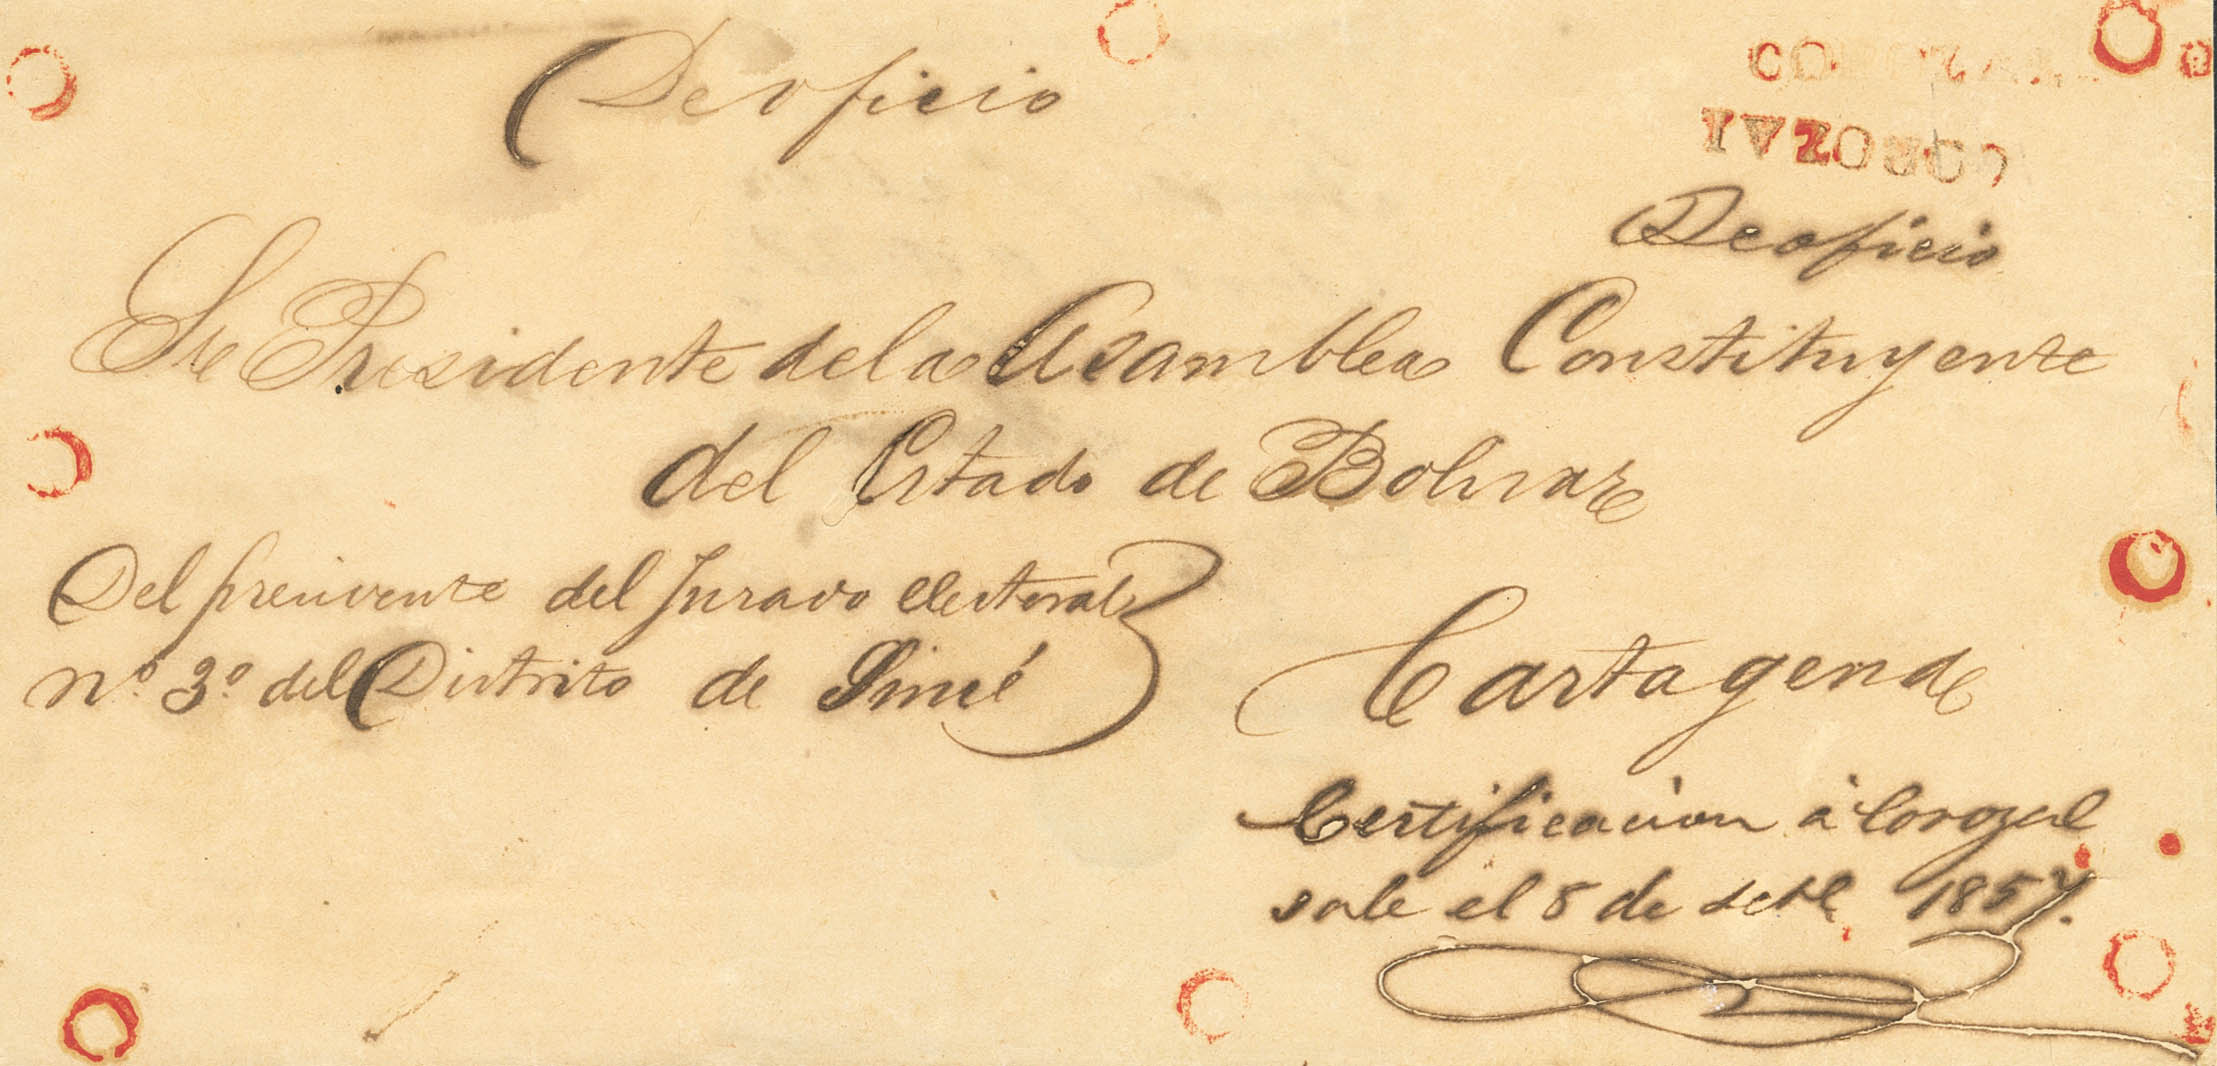 De oficio
COROZAL
COROZAL
De oficio
Sr Presidente de la Asamblea Constituyente
del Estado de Bolivar
Del presidente del Jurado electoral
nº. 3º. del Distrito de Sincé
Cartagena
Certificacion á Corozal
sale el 8 de setbe 1857.